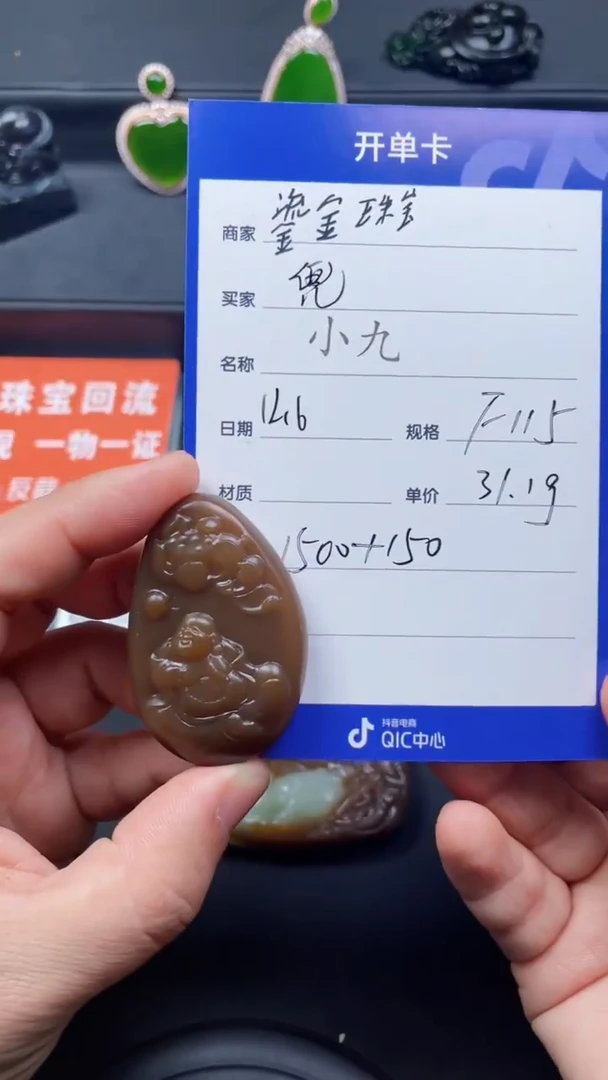 开单卡
商家 鎏金珠宝
买家 兜
名称 小九
日期 12.16 规格 F115
材质 单价 31.1g
1500+150
珠宝回流
一物一证
抖音电商
QIC中心